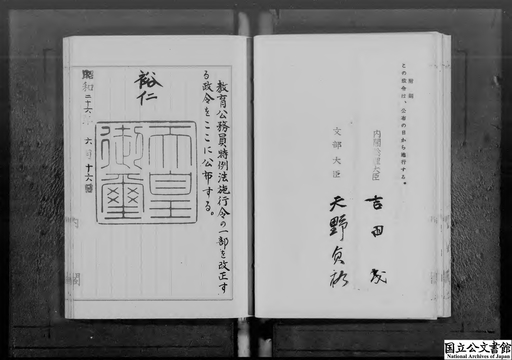 附則
この政令は、公布の日から施行する。
内閣総理大臣
吉田茂
文部大臣
天野貞祐
教育公務員特例法施行令の一部を改正す
る政令をここに公布する。
裕仁
天皇
御璽
昭和二十六年六月十六日
内閣
国立公文書館
National Archives of Japan